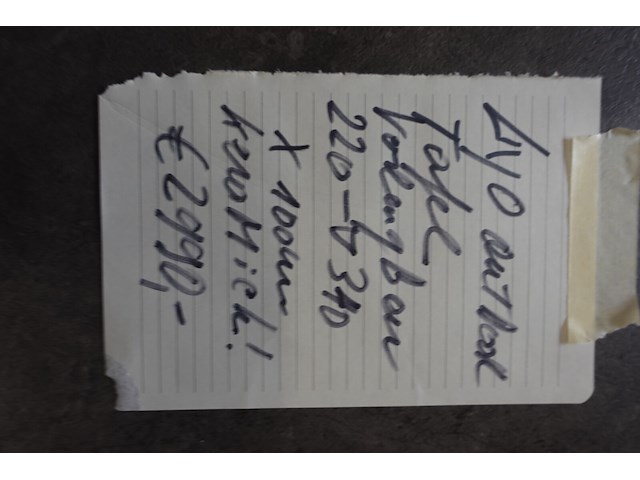 LYO outdoor
Tafel
Verlengbaar
220 → 340
X 100cm
keraMiek!
€ 2990,-